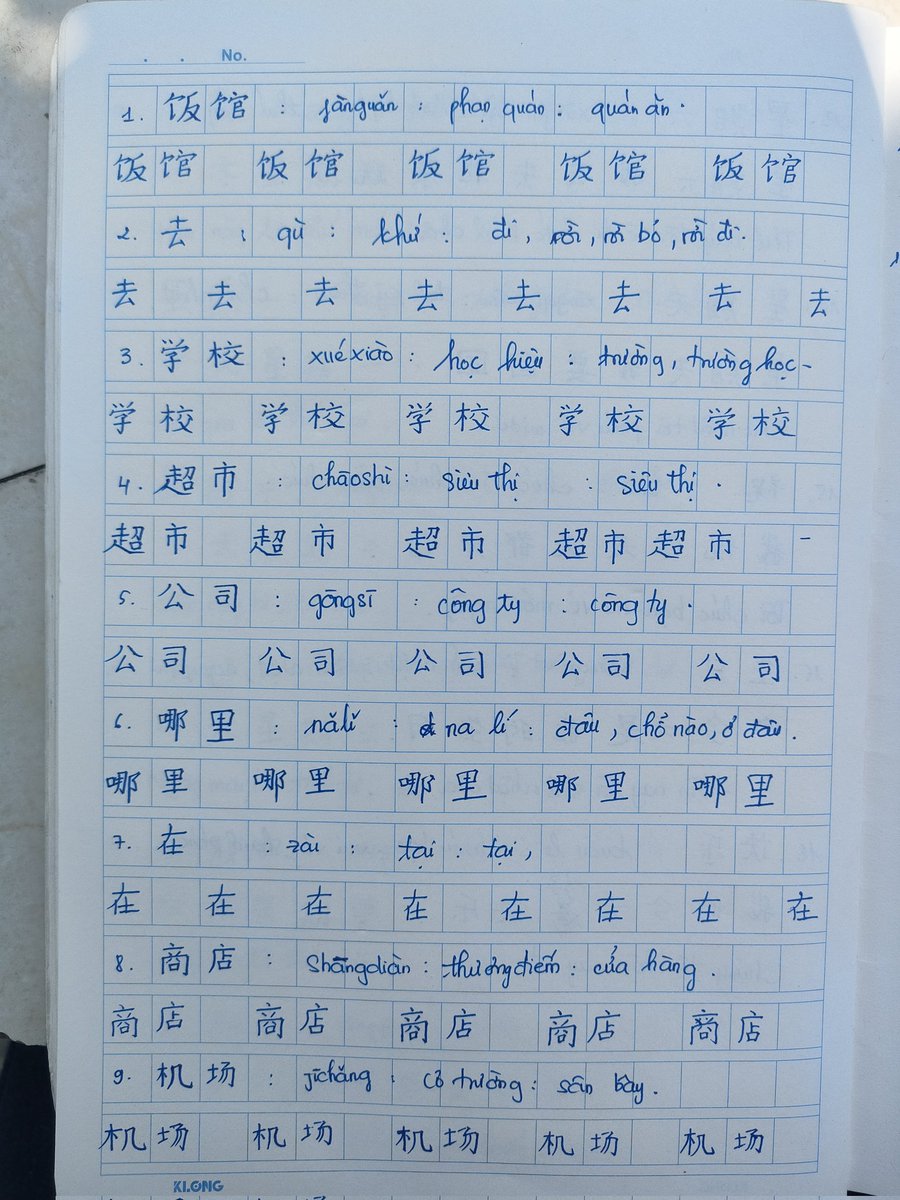 No.
1. 饭馆 : fànguǎn : phạn quán : quán ăn.
饭馆 饭馆 饭馆 饭馆 饭馆
2. 去 : qù : khứ : đi, rời, rời bỏ, rời đi.
去 去 去 去 去 去 去 去
3. 学校 : xuéxiào : học hiệu : trường, trường học-
学校 学校 学校 学校 学校
4. 超市 : chāoshì : siêu thị : siêu thị.
超市 超市 超市 超市 超市 -
5. 公司 : gōngsī : công ty : công ty.
公司 公司 公司 公司 公司
6. 哪里 : nǎlǐ : na lí : đâu, chỗ nào, ở đâu.
哪里 哪里 哪里 哪里 哪里
7. 在 : zài : tại : tại,
在 在 在 在 在 在 在 在
8. 商店 : shāngdiàn : thương điếm : cửa hàng.
商店 商店 商店 商店 商店
9. 机场 : jīchǎng : cơ trường : sân bay.
机场 机场 机场 机场 机场
KLONG